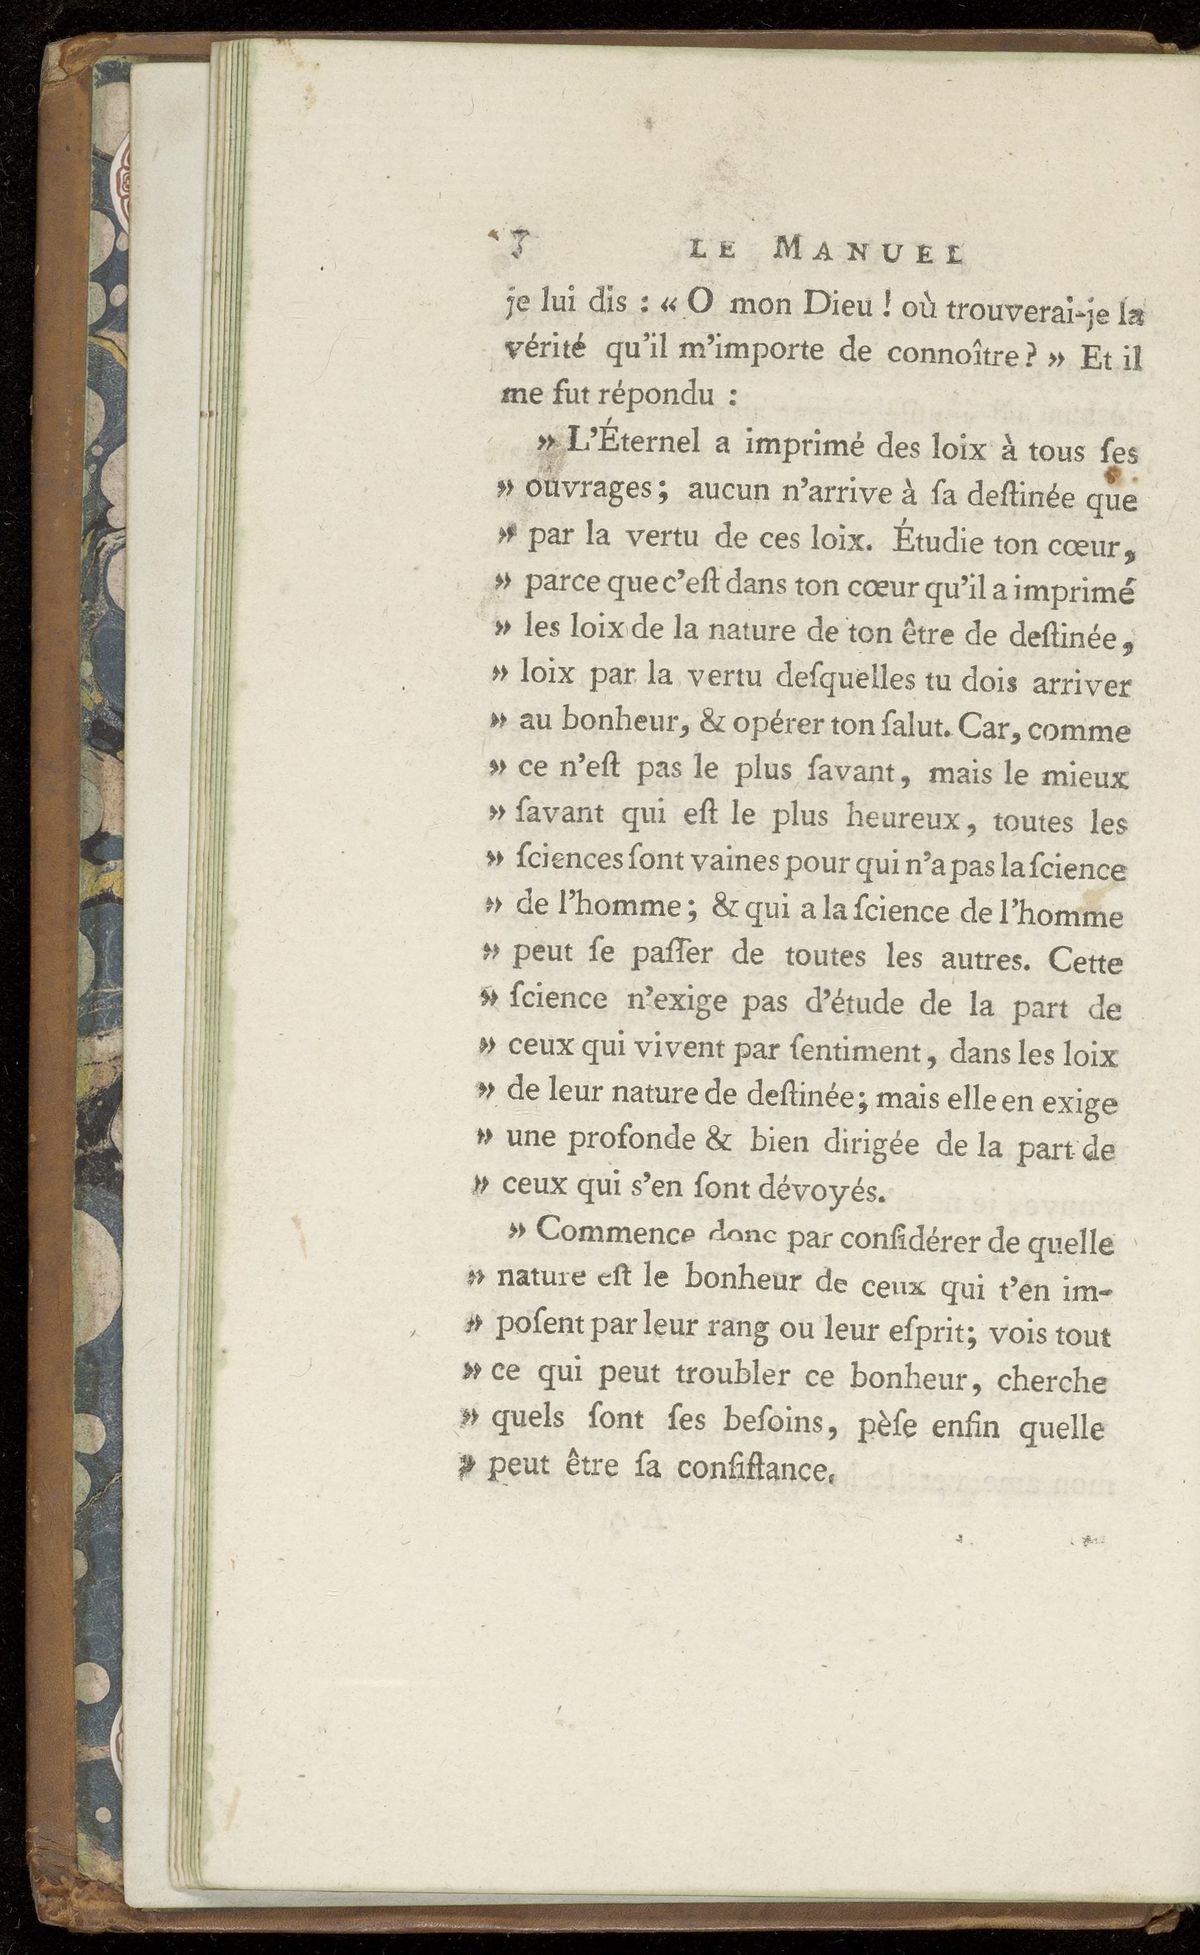 LE MANUEL
je lui dis : « O mon Dieu ! où trouverai-je la
vérité qu'il m'importe de connoître ? » Et il
me fut répondu :
» L'Éternel a imprimé des loix à tous ſes
» ouvrages ; aucun n'arrive à ſa deſtinée que
» par la vertu de ces loix. Étudie ton cœur,
» parce que c'eſt dans ton cœur qu'il a imprimé
» les loix de la nature de ton être de deſtinée,
» loix par la vertu deſquelles tu dois arriver
» au bonheur, & opérer ton ſalut. Car, comme
» ce n'eſt pas le plus ſavant, mais le mieux
» ſavant qui eſt le plus heureux, toutes les
» ſciences ſont vaines pour qui n'a pas la ſcience
» de l'homme ; & qui a la ſcience de l'homme
» peut ſe paſſer de toutes les autres. Cette
» ſcience n'exige pas d'étude de la part de
» ceux qui vivent par ſentiment, dans les loix
» de leur nature de deſtinée ; mais elle en exige
» une profonde & bien dirigée de la part de
» ceux qui s'en ſont dévoyés.
» Commence donc par conſidérer de quelle
» nature eſt le bonheur de ceux qui t'en im-
» poſent par leur rang ou leur eſprit ; vois tout
» ce qui peut troubler ce bonheur, cherche
» quels ſont ſes beſoins, pèſe enfin quelle
» peut être ſa conſiſtance.